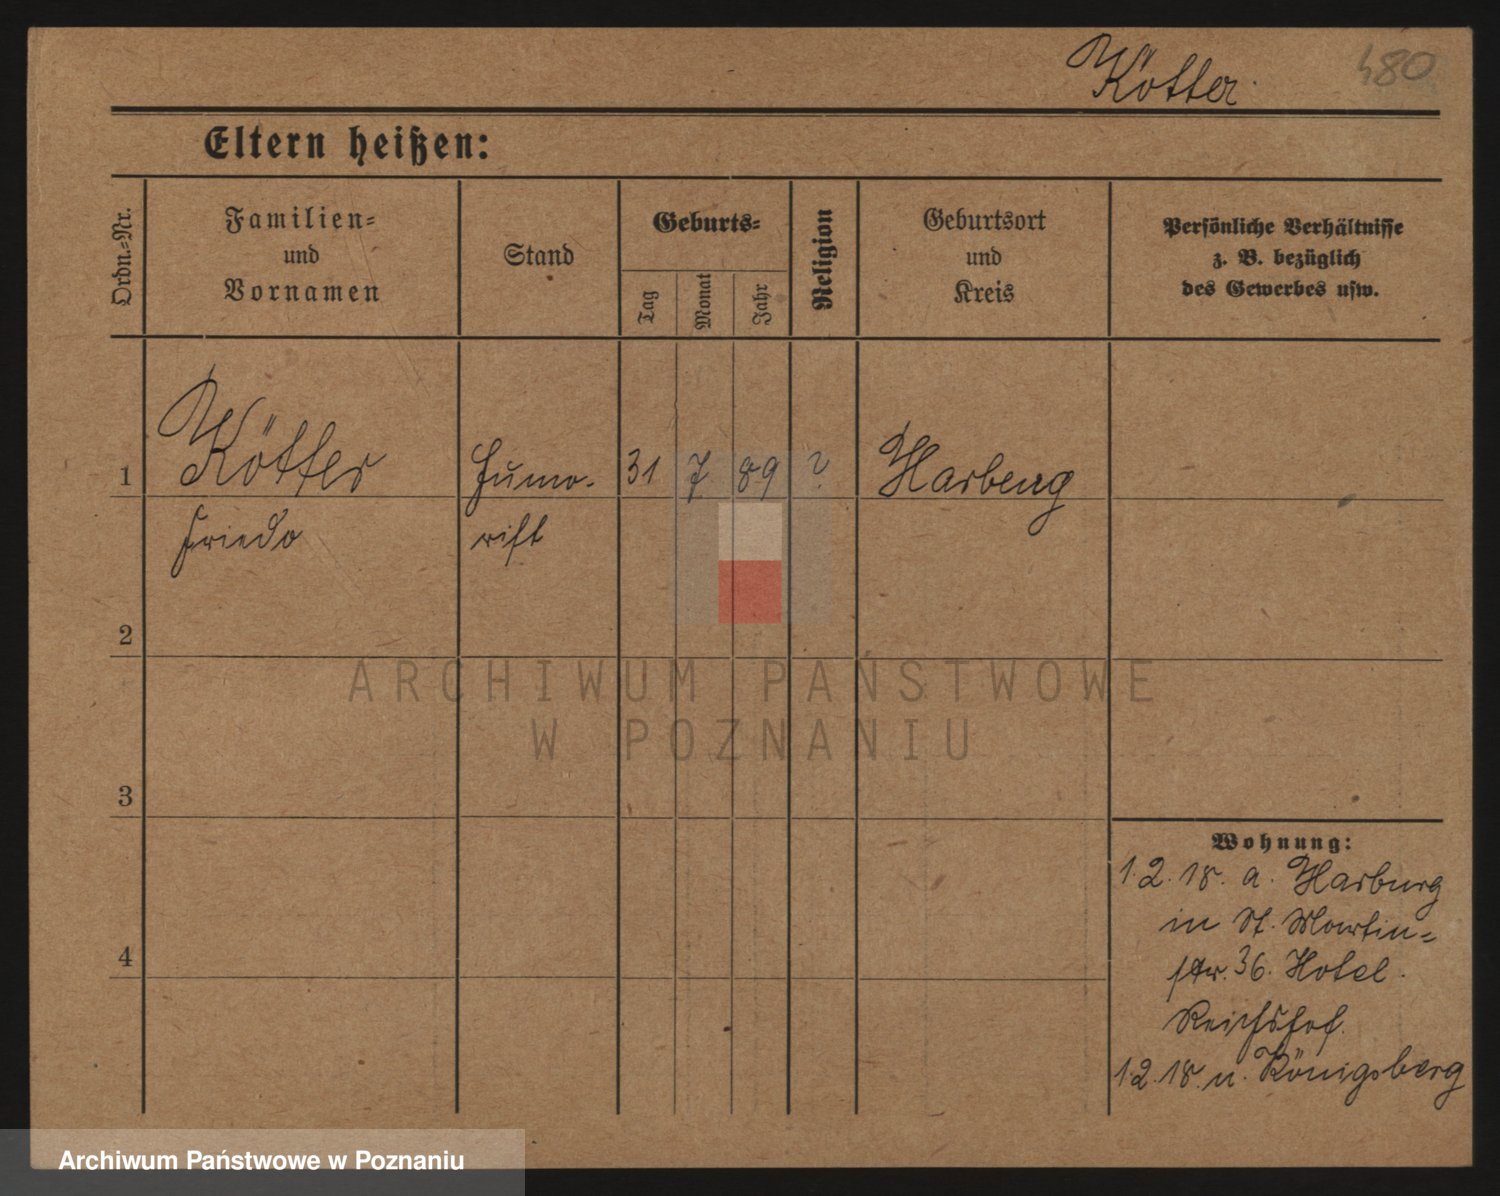 Kötter.
480
Eltern heißen:
Ordn.-Nr.
Familien-
und
Vornamen
Stand
Geburts-
Tag
Monat
Jahr
Religion
Geburtsort
und
Kreis
Persönliche Verhältnisse
z. B. bezüglich
des Gewerbes usw.
1
Kötter
Humo-
31
7
89
?
Harburg
Friedo
rist
2
ARCHIWUM PAŃSTWOWE
W POZNANIU
3
Wohnung:
1.2.18. a. Harburg
in St. Martin-
str. 36. Hotel
Reichshof.
4
1.2.18. n. Königsberg
Archiwum Państwowe w Poznaniu